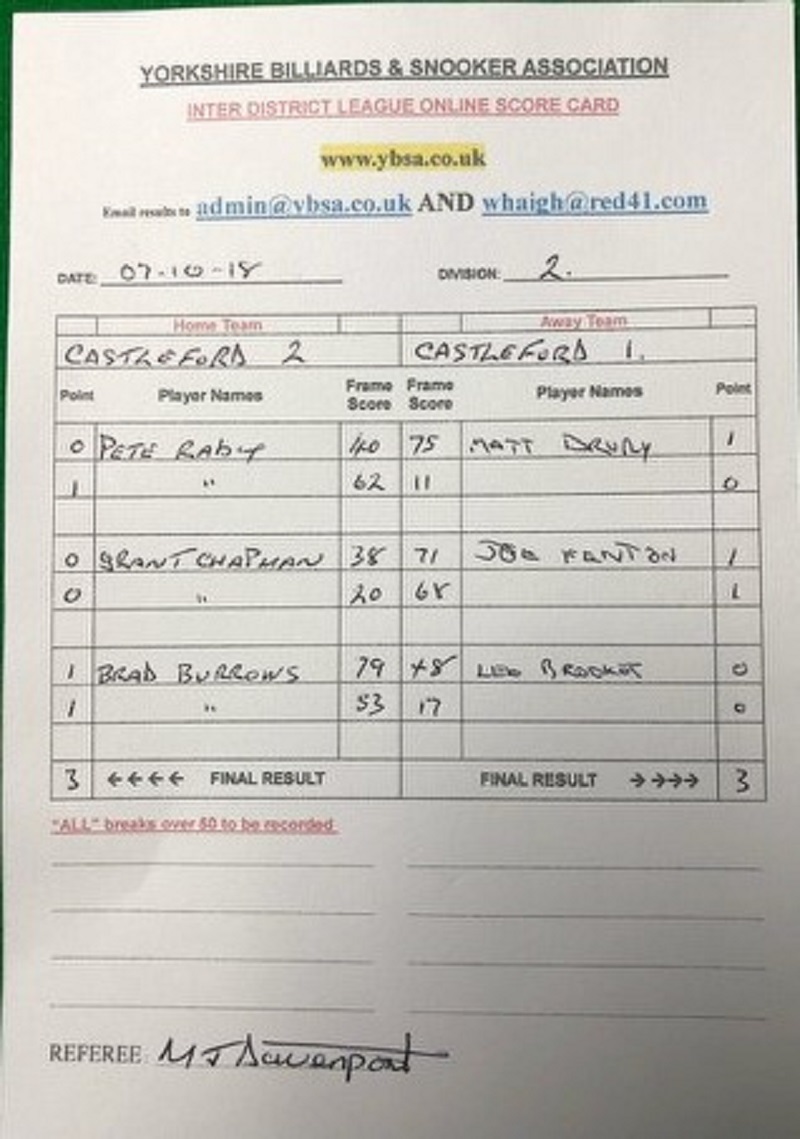 YORKSHIRE BILLIARDS & SNOOKER ASSOCIATION
INTER DISTRICT LEAGUE ONLINE SCORE CARD
www.ybsa.co.uk
Email results to admin@ybsa.co.uk AND whaigh@red41.com
DATE: 07-10-18 DIVISION: 2.
Home Team Away Team
CASTLEFORD 2 CASTLEFORD 1.
Point Player Names Frame Score Frame Score Player Names Point
0 PETE RABY 40 75 MATT DRURY 1
1 " 62 11 0
0 GRANT CHAPMAN 38 71 JOE FENTON 1
0 " 20 68 1
1 BRAD BURROWS 79 48 LEE 0
1 " 53 17 0
3 ←←←← FINAL RESULT FINAL RESULT →→→→ 3
"ALL" breaks over 50 to be recorded
REFEREE: M J Davenport